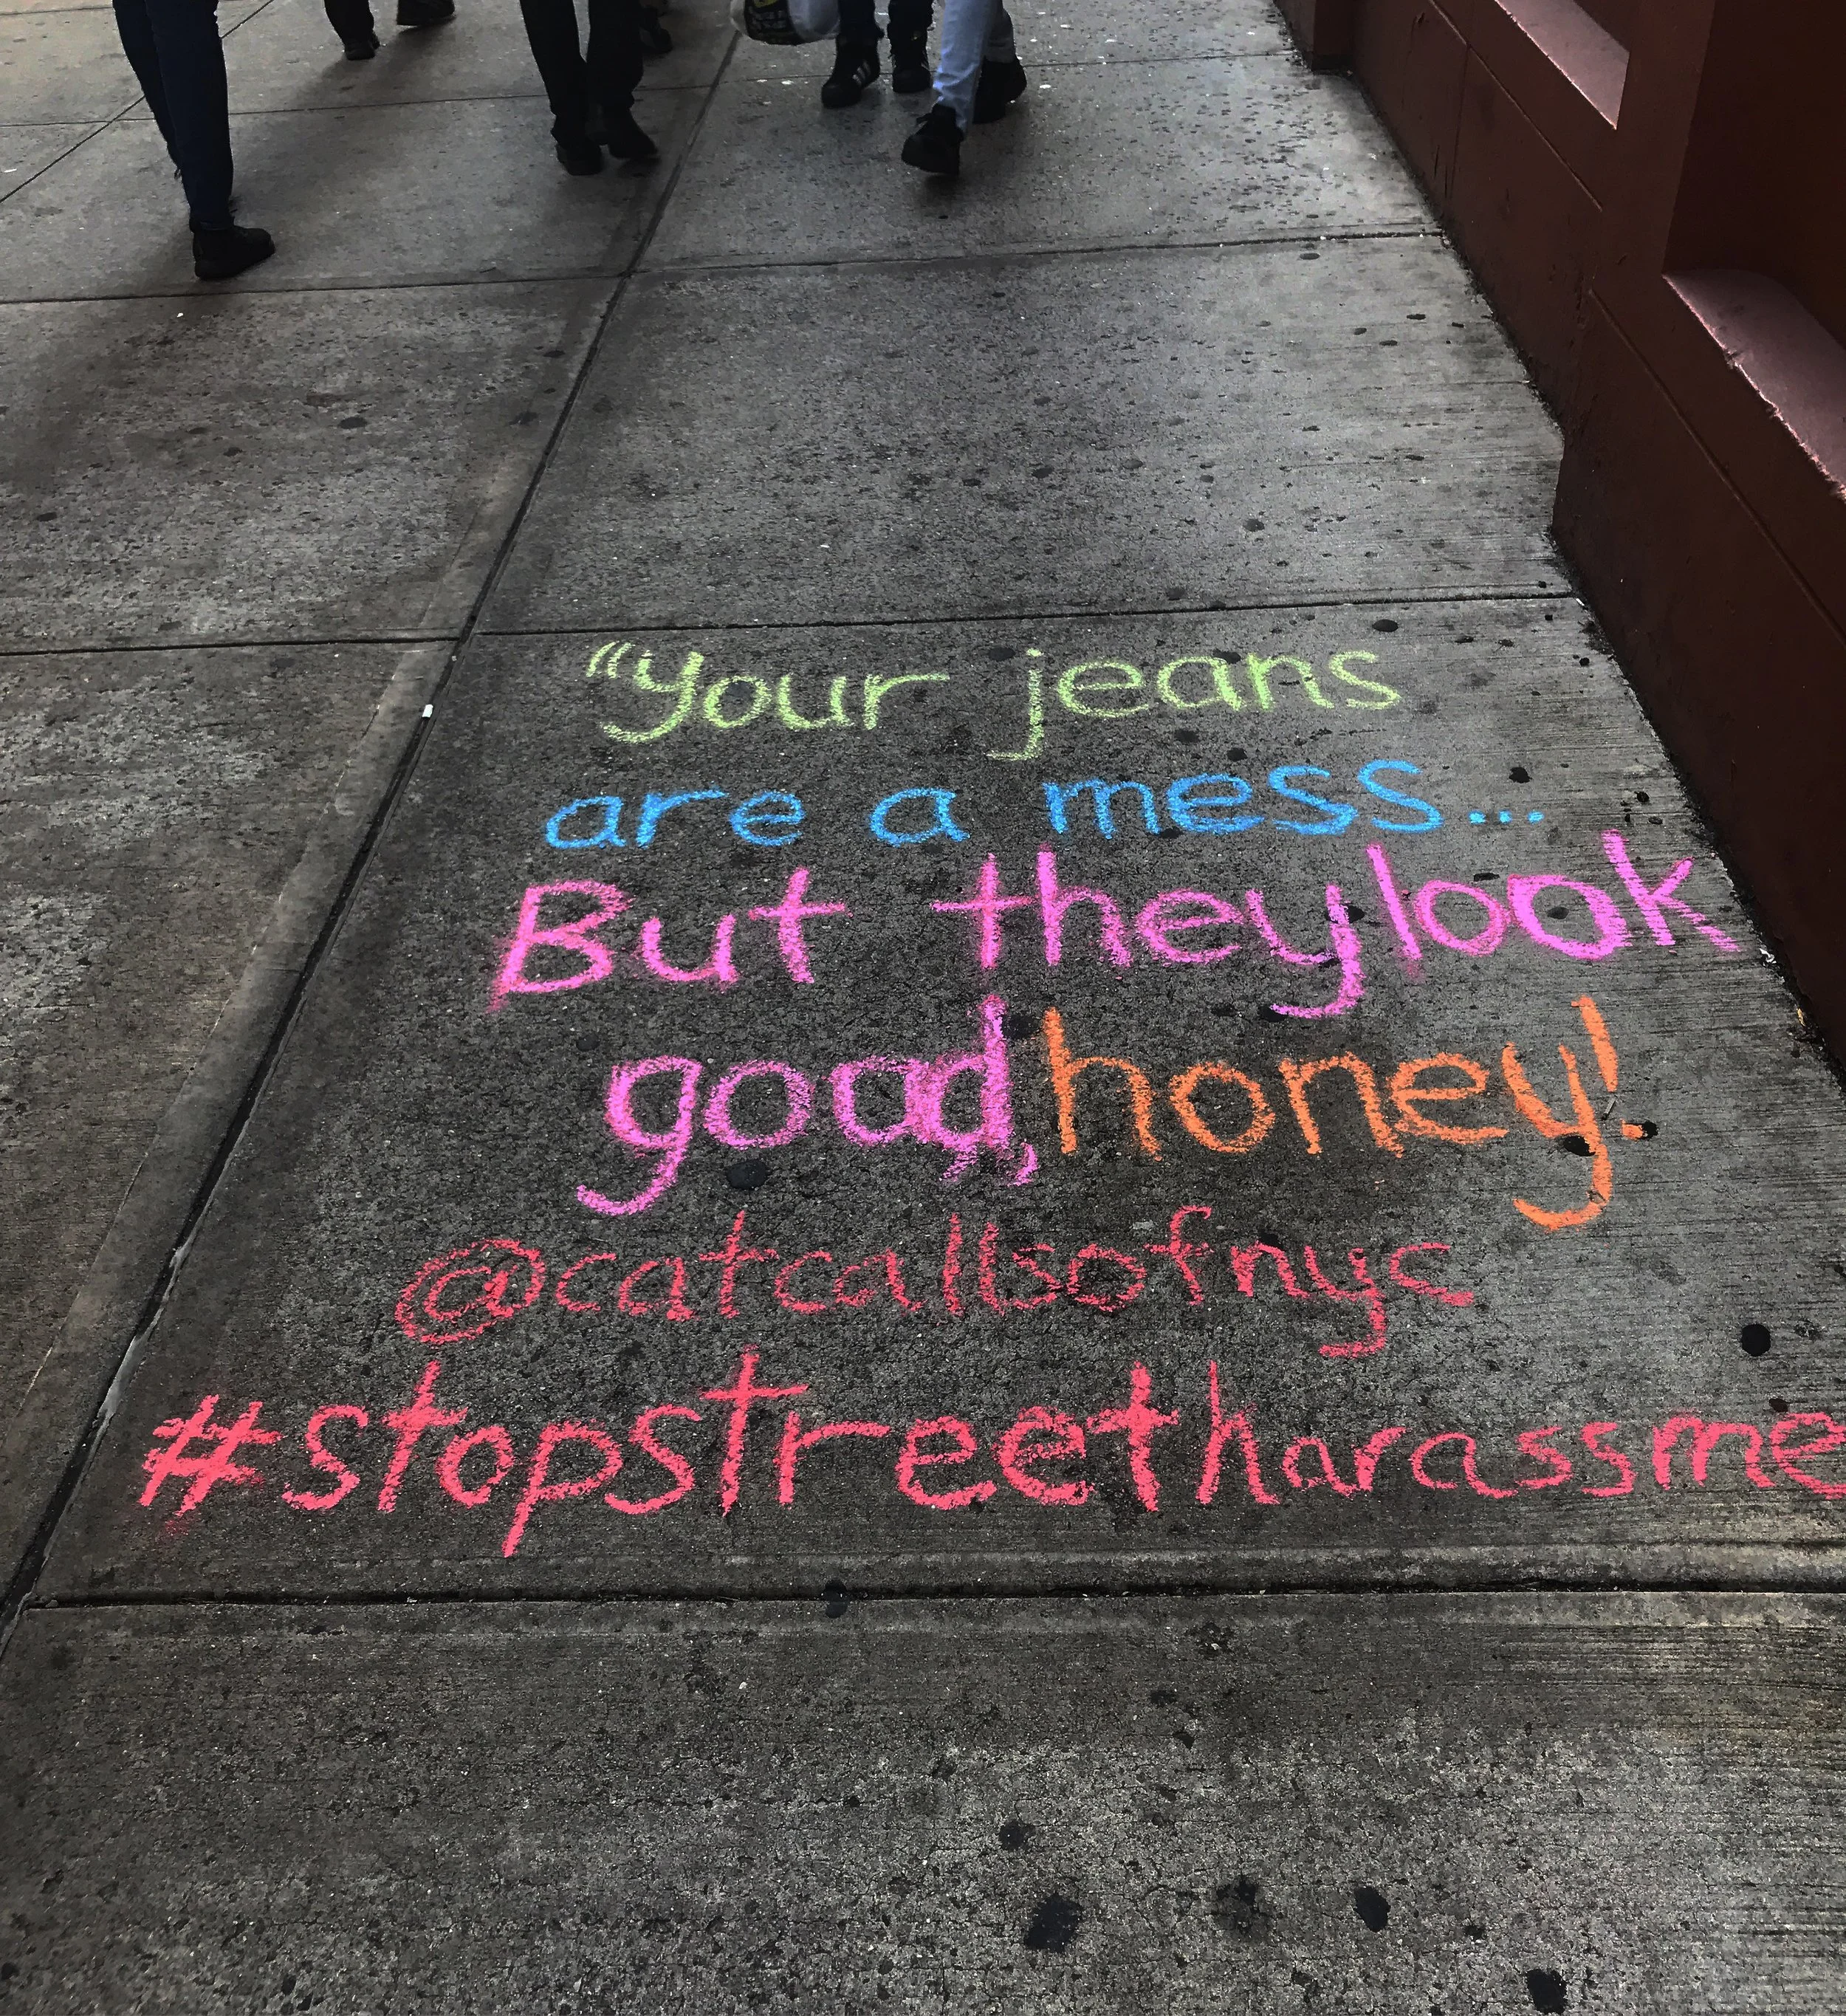 "Your jeans
are a mess...
But they look
good, honey!
@catcallsofnyc
#stopstreetharassme